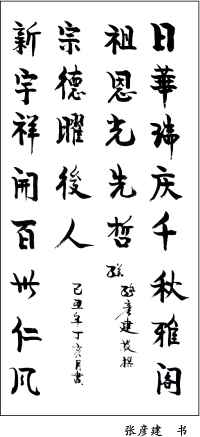 日華瑞庆千秋雅阁
祖恩光先哲
彦建敬撰
宗德曜後人
己丑年丁亥月書
新宇祥開百世仁风
张彦建 书